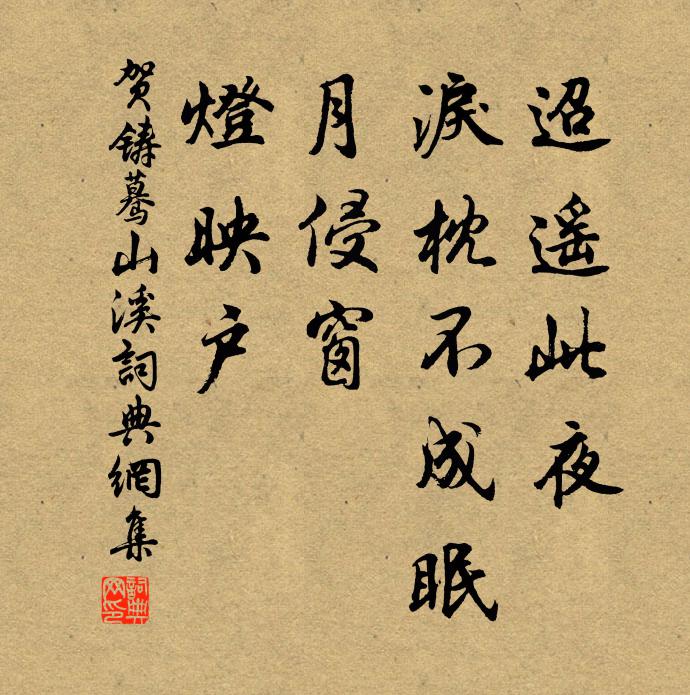 迢遥此夜
淚枕不成眠
月侵窗
燈映户
贺鑄蓦山溪詞典網集
詞典网印